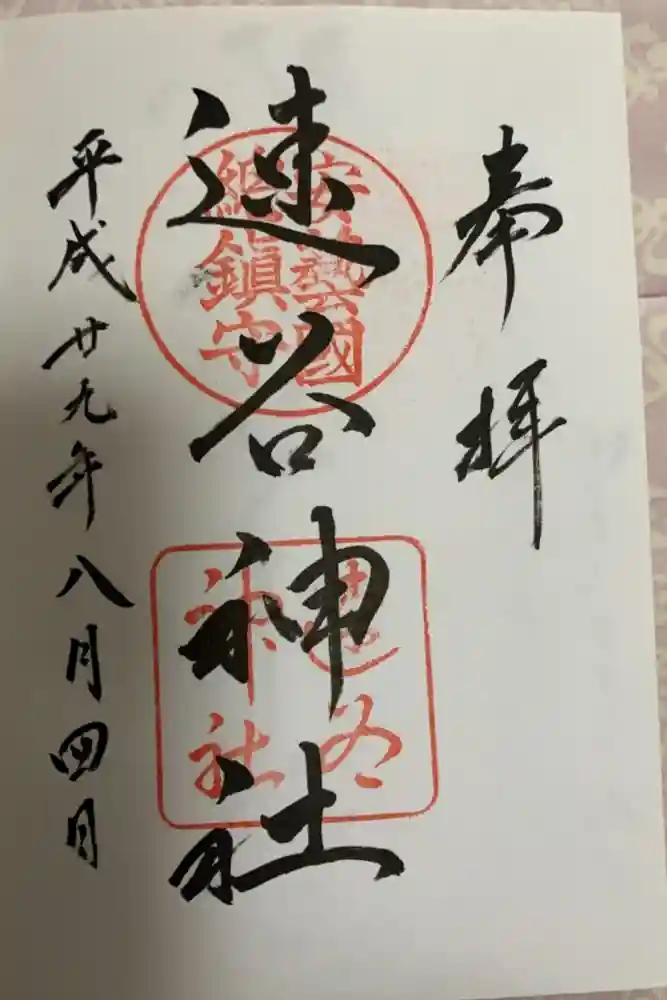 奉拝
安藝國
総鎮守
速谷神社
速谷
神社
平成廿九年八月四日